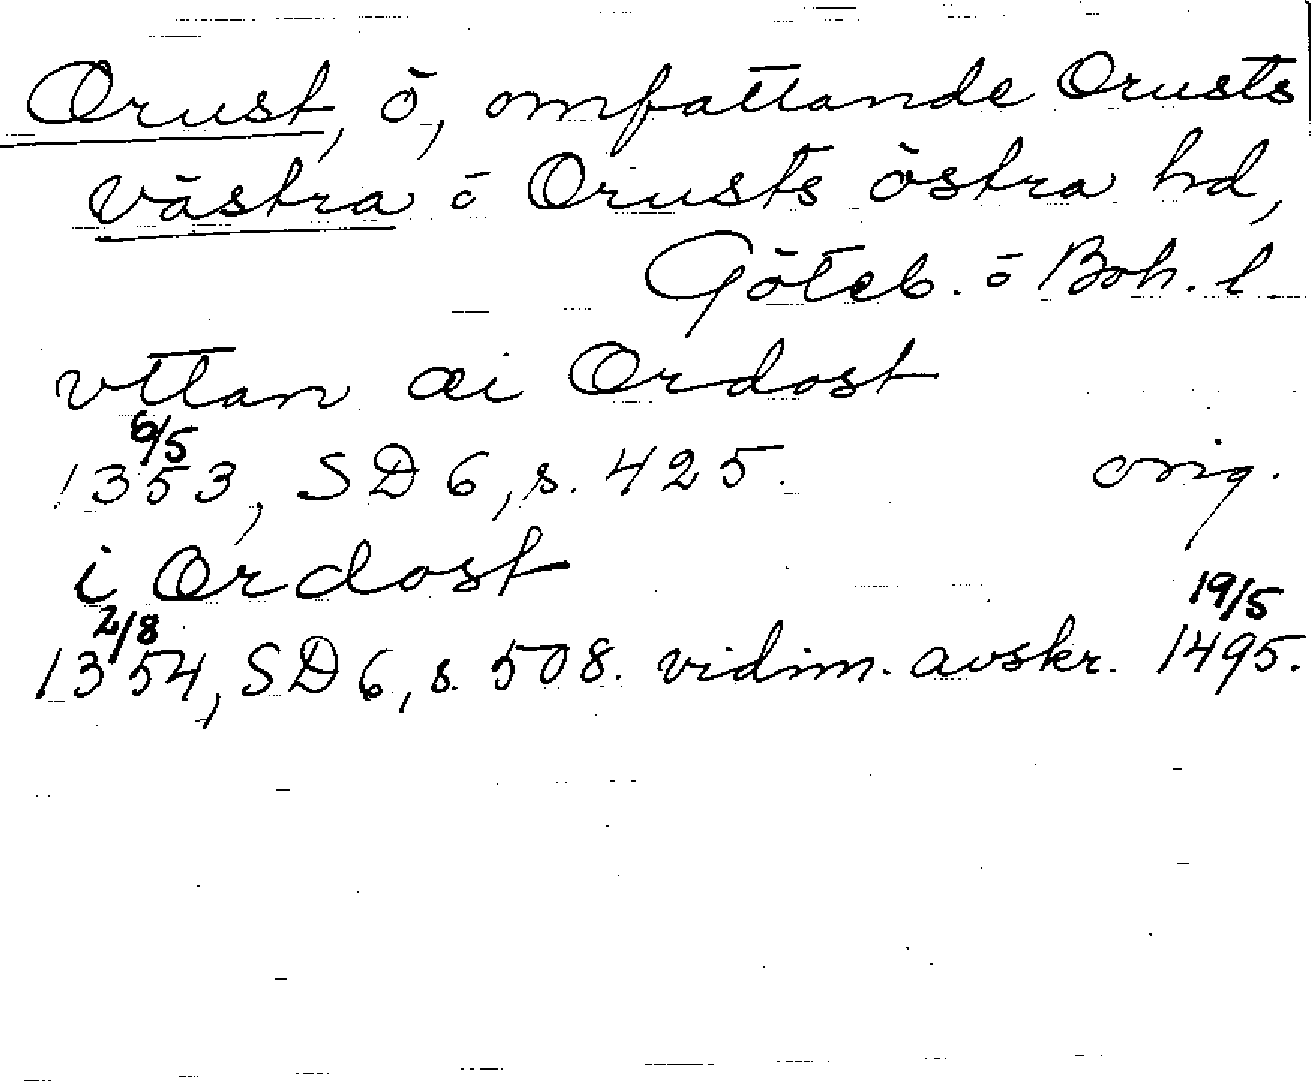 Orust, ö, omfattande Orusts
västra o Orusts östra hd,
Göteb. o Boh. l.
vtlan ai Ordost
6/5
1353, SD 6, s. 425. orig.
i Ordost
2/8 19/5
1354, SD 6, s. 508. vidim. avskr. 1495.